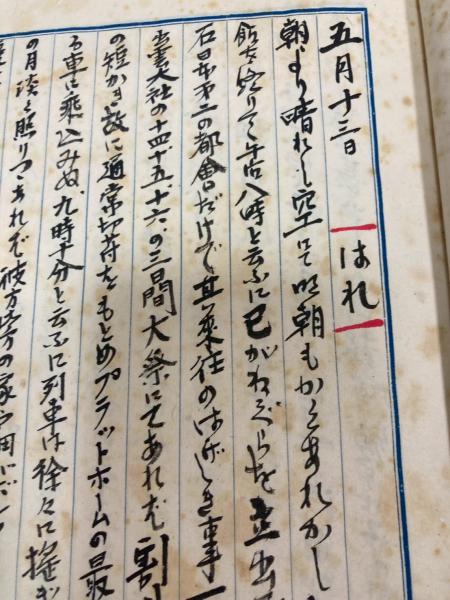 五月十三日 はれ
朝より晴れし空にて明朝もかくあれかし
飯を終りて午后八時と云ふに己がねぐらを立出
石日本第二の都會だけで其乗往のはげしき事
出雲大社の十四、十五、十六、の三日間大祭にてあれば割
の短かき故に通常切符をもとめプラットホームの最
る車に乗込みぬ、九時十分と云ふに列車は徐々に搖ぎ
の月淡く照りつゝあれば彼方
の家